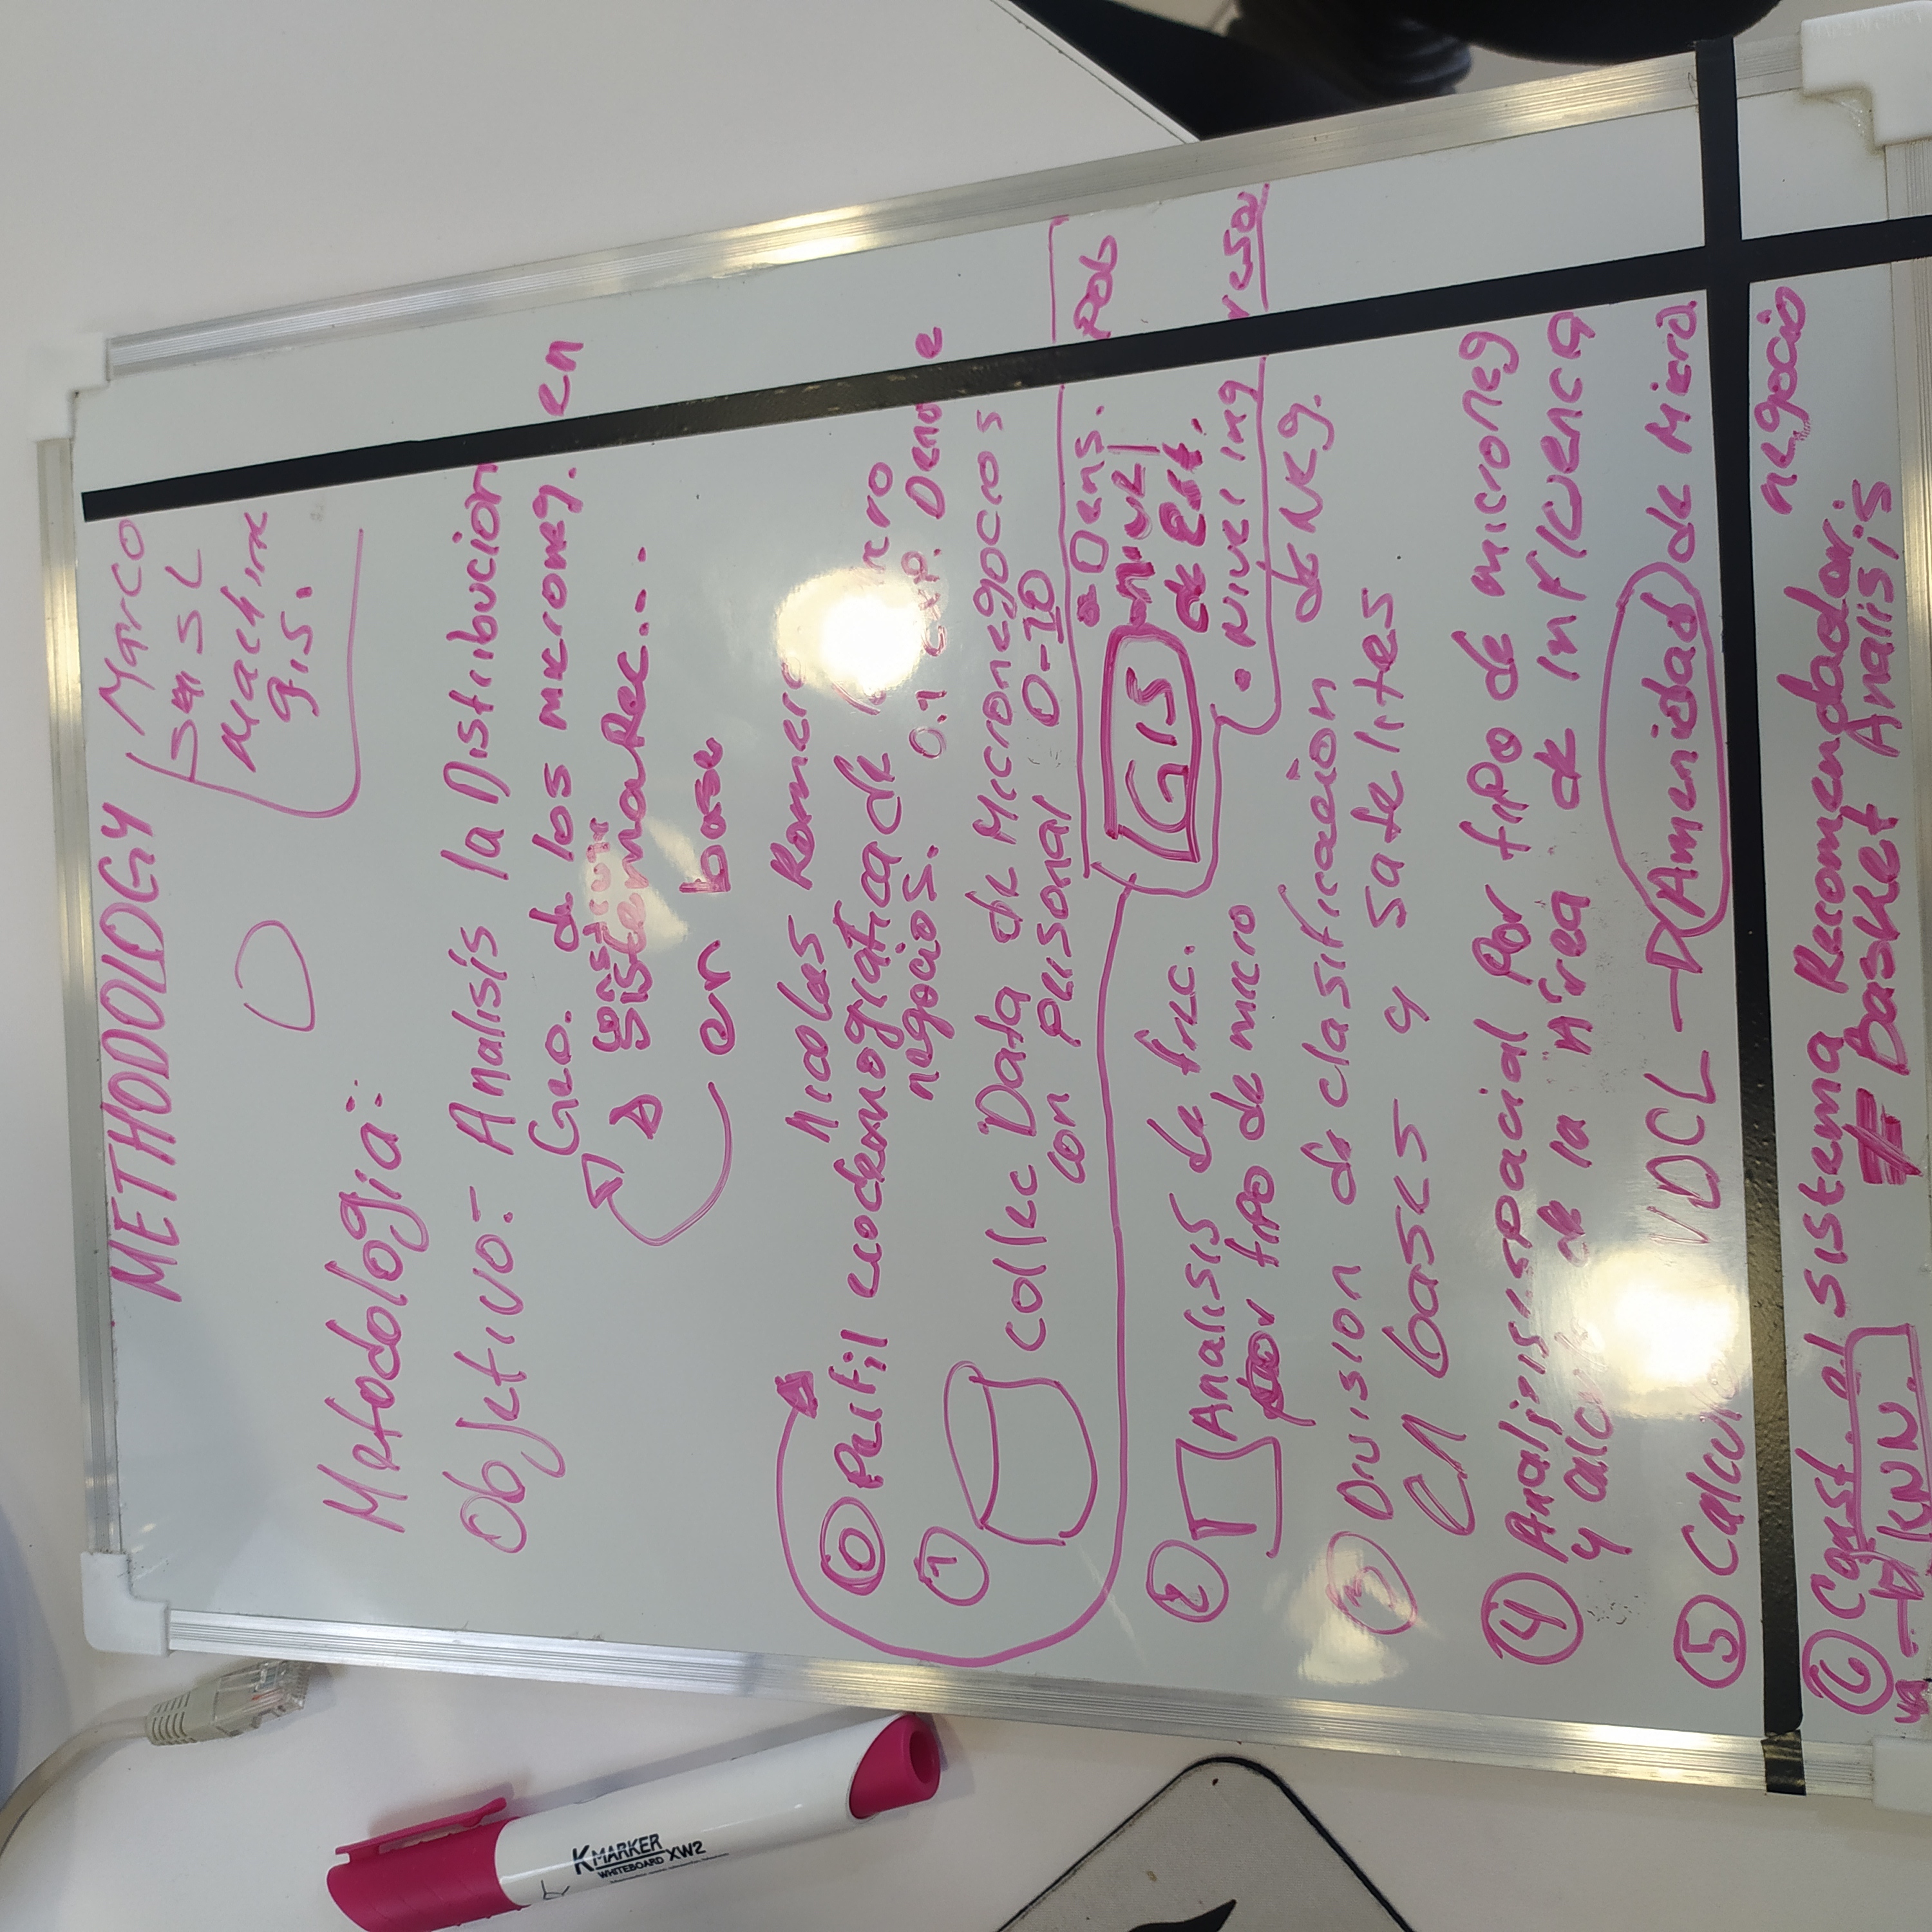 METHODOLOGY
Marco
SL
Machine
g.i.s.
Metodologia:
Objetivo:- Analisis la Distribucion
Geo. de los microneg. en
construir
Sistema Rec...
en base
Nicolas Romero
0 Perfil ecodemografica de
negocios. 0.1 exp. Denote
1 collec Data de Micronegocios
con personal 0-10
GIS
Dens. Pob
nivel
de Est.
• Nivel ingresos
2 Analisis de frec.
por tipo de micro
de Neg.
3 Division de clasificacion
en bases y satelites
4 Analisis espacial Por tipo de microneg
y calculo de la Area de influencia
5 Calculo VDCL → Amenidad de Micro
negocio
6 Const. el sistema Recomendador.
→ KNN. ≠ Basket Analisis
KMARKER
WHITEBOARD XW2